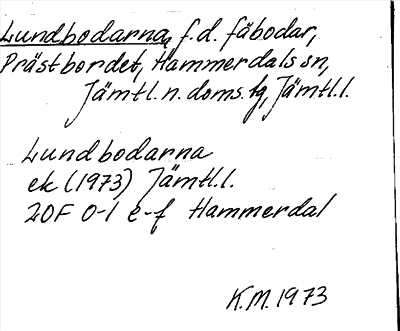 Lundbodarna, f.d. fäbodar,
Prästbordet, Hammerdals sn,
Jämtl.n. doms.tg, Jämtl.l.
Lundbodarna
ek (1973) Jämtl.l.
20F 0-1 e-f Hammerdal
K.M. 1973